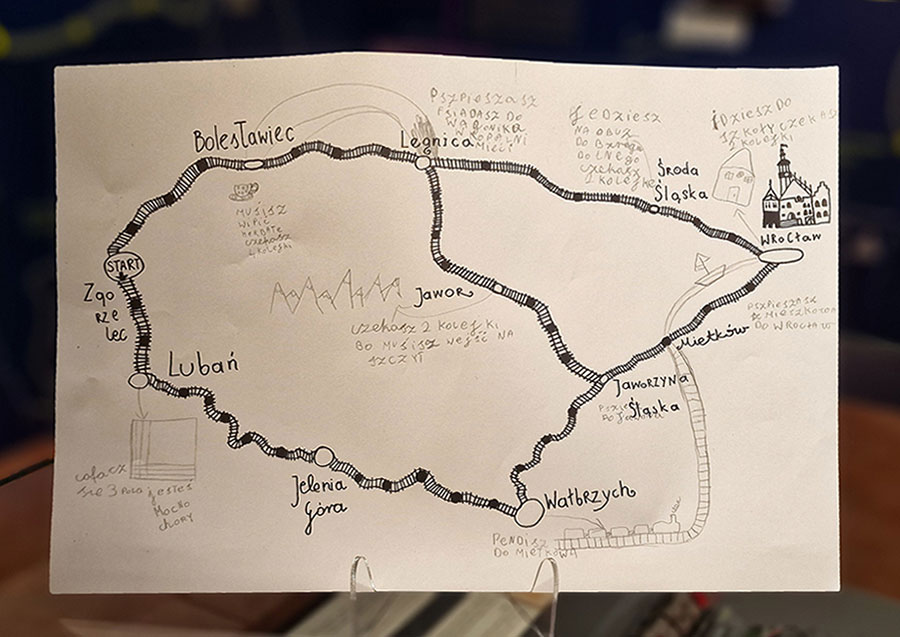 Bolesławiec
PSZPIESZASZ
FSIADASZ DO
WAGONIKA
W KOPALNI
MIEĆI
Legnica
JEDZIESZ
NA OBUZ
DO
DOLNEGO
czekasz
1 kolejkę
Środa
Śląska
IDZIESZ DO
SZKOŁY CZEKASZ
2 KOLEJKI
WROCŁAW
MUśISZ
WIPIĆ
HERBATE
czekasz
KOLEJKI
START
Zgo
rze
lec
JAWOR
czekasz 2 KOLEJKI
BO MUśISZ WEJŚĆ NA
SZCZYT
PSZPIESZASZ
Z MIESZKOWA
DO WROCŁAWIA
Mietków
JAWORZYNA
Śląska
Lubań
cofasz
się 3 Pola jesteś
MOCNO
CHORY
Jelenia
Góra
Wałbrzych
PENDISZ
DO MIETKOWA